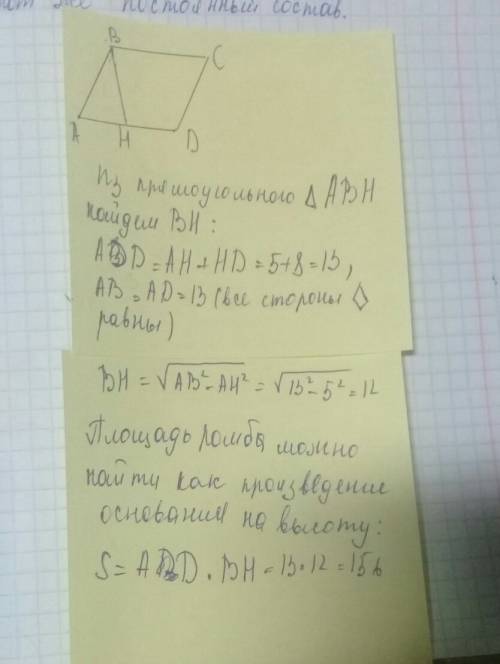 постоянный состав.
B
C
A
H
D
Из прямоугольного △ ABH
найдем BH:
AD = AH + HD = 5+8 = 13,
AB = AD = 13 (все стороны ◊
равны)
BH = √AB²-AH² = √13²-5² = 12
Площадь ромба можно
найти как произведение
основания на высоту:
S = AD · BH = 13·12 = 156